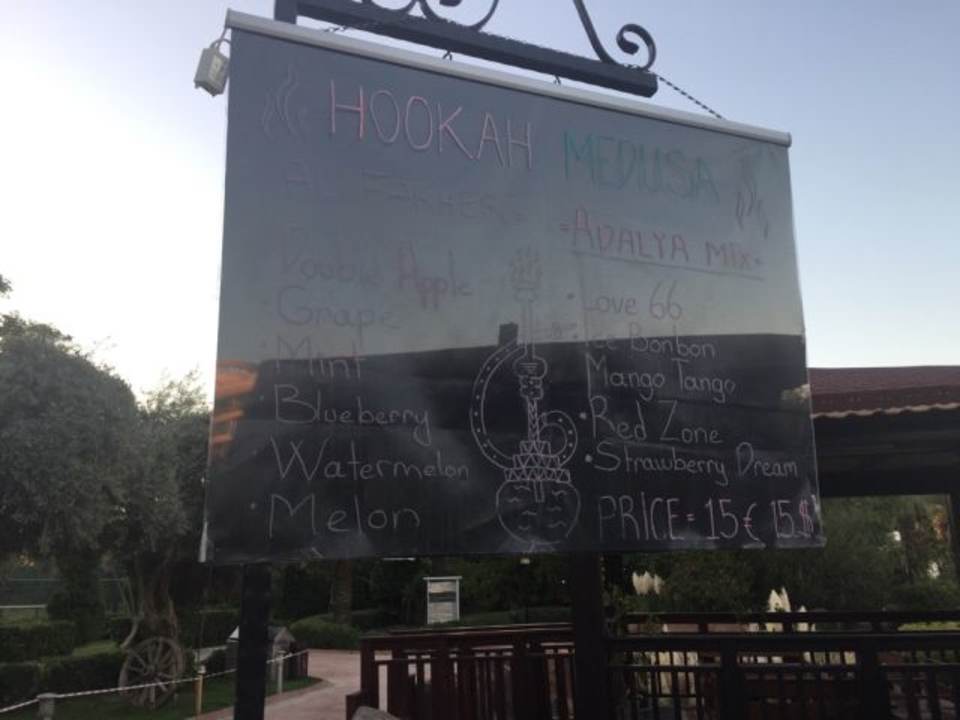 HOOKAH MEDUSA
AL FAKHER
Double Apple
Grape
Mint
Blueberry
Watermelon
Melon
=ADALYA MIX=
Love 66
Ice Bonbon
Mango Tango
Red Zone
Strawberry Dream
PRICE = 15€ 15.$